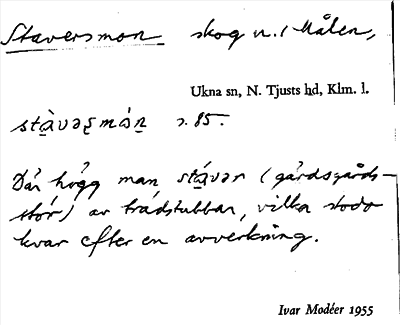 Staversmon skog n. i Målen,
Ukna sn, N. Tjusts hd, Klm. l.
stàvəʂmån s. 85.
Där högg man stávər (gärdsgårds-
stör) av trädstubbar, vilka stodo
kvar efter en avverkning.
Ivar Modéer 1955